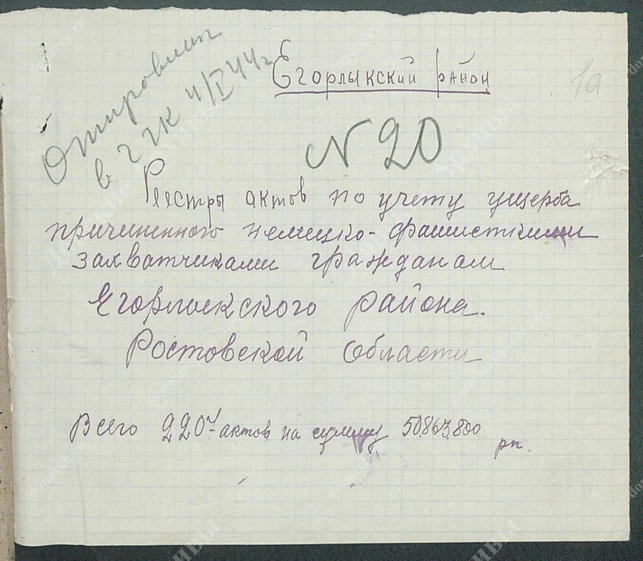 Отправлен
в ГГК 4/I 44 г
Егорлыкский район
1а
№ 20
Реестры актов по учету ущерба
причиненного немецко-фашистскими
захватчиками гражданам
Егорлыкского района.
Ростовской области
Всего 2207 актов на сумму 50863800